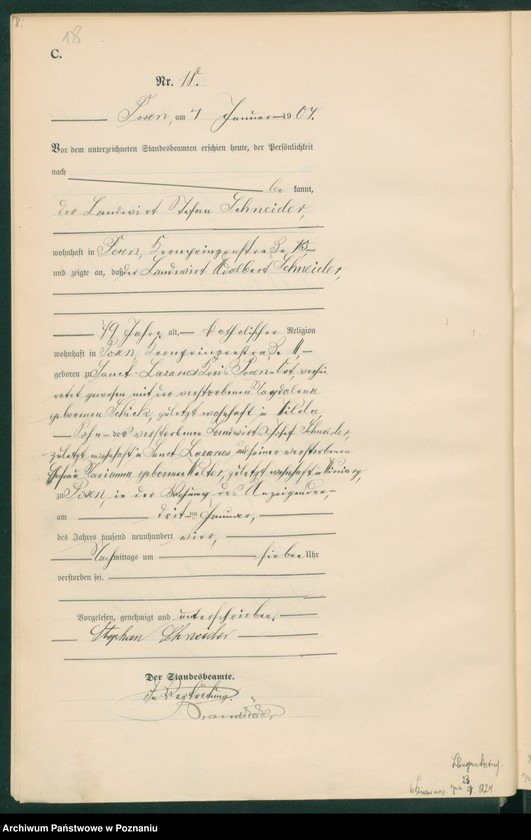 18
C.
Nr. 18.
Posen, am 4 Januar 1904.
Vor dem unterzeichneten Standesbeamten erschien heute, der Persönlichkeit
nach
be kannt,
der Landwirt Stefan Schneider,
wohnhaft in Posen, Kronprinzenstraße
und zeigte an, daß der Landwirt Adalbert Schneider,
79 Jahre alt, katholischer Religion
wohnhaft in Posen Kronprinzenstraße
geboren zu Sanct-Lazarus Kreis Posen-Ost, verhei
ratet gewesen mit der verstorbenen Magdalena
geborenen Schick, zuletzt wohnhaft in Wilda,
Sohn des verstorbenen Landwirts Josef Schneider,
zuletzt wohnhaft in Sanct Lazarus und seiner verstorbenen
Ehefrau Marianna geborenen Walter, zuletzt wohnhaft in
zu Posen, in der Wohnung des Anzeigenden
am dritten Januar,
des Jahres tausend neunhundert vier,
Nachmittags um sieben Uhr
verstorben sei.
Vorgelesen, genehmigt und unterschrieben.
Stephan Schneider
Der Standesbeamte.
In Vertretung.
Archiwum Państwowe w Poznaniu